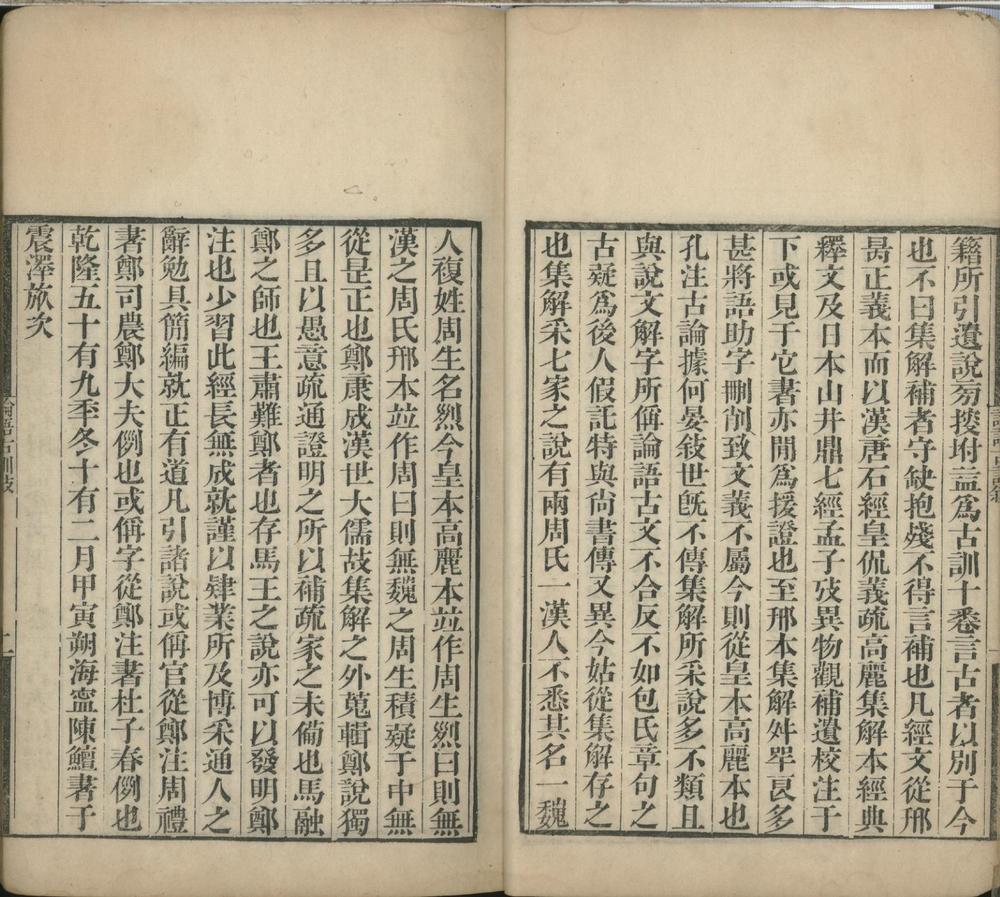 籍所引遺說菊搜坿益爲古訓十卷言古者以別于今
也不曰集解補者守缺抱殘不得言補也凡經文從邢
昺正義本而以漢唐石經皇侃義疏高麗集解本經典
釋文及日本山井鼎七經孟子攷異物觀補遺校注于
下或見于它書亦閒爲援證也至邢本集解舛𦊆良多
甚將語助字刪削致文義不屬今則從皇本高麗本也
孔注古論據何晏敍世旣不傳集解所采說多不類且
與說文解字所偁論語古文不合反不如包氏章句之
古疑爲後人假託特與尚書傳又異今姑從集解存之
也集解采七家之說有兩周氏一漢人不悉其名一魏
人複姓周生名烈今皇本高麗本並作周生烈曰則無
漢之周氏邢本並作周曰則無魏之周生積疑于中無
從是正也鄭康成漢世大儒故集解之外蒐輯鄭說獨
多且以愚意疏通證明之所以補疏家之未備也馬融
鄭之師也王肅難鄭者也存馬王之說亦可以發明鄭
注也少習此經長無成就謹以肄業所及博采通人之
辭勉具簡編就正有道凡引諸說或偁官從鄭注周禮
書鄭司農鄭大夫例也或偁字從鄭注書杜子春例也
乾隆五十有九秊冬十有二月甲寅朔海寧陳鱣書于
震澤旅次
論語古訓敍